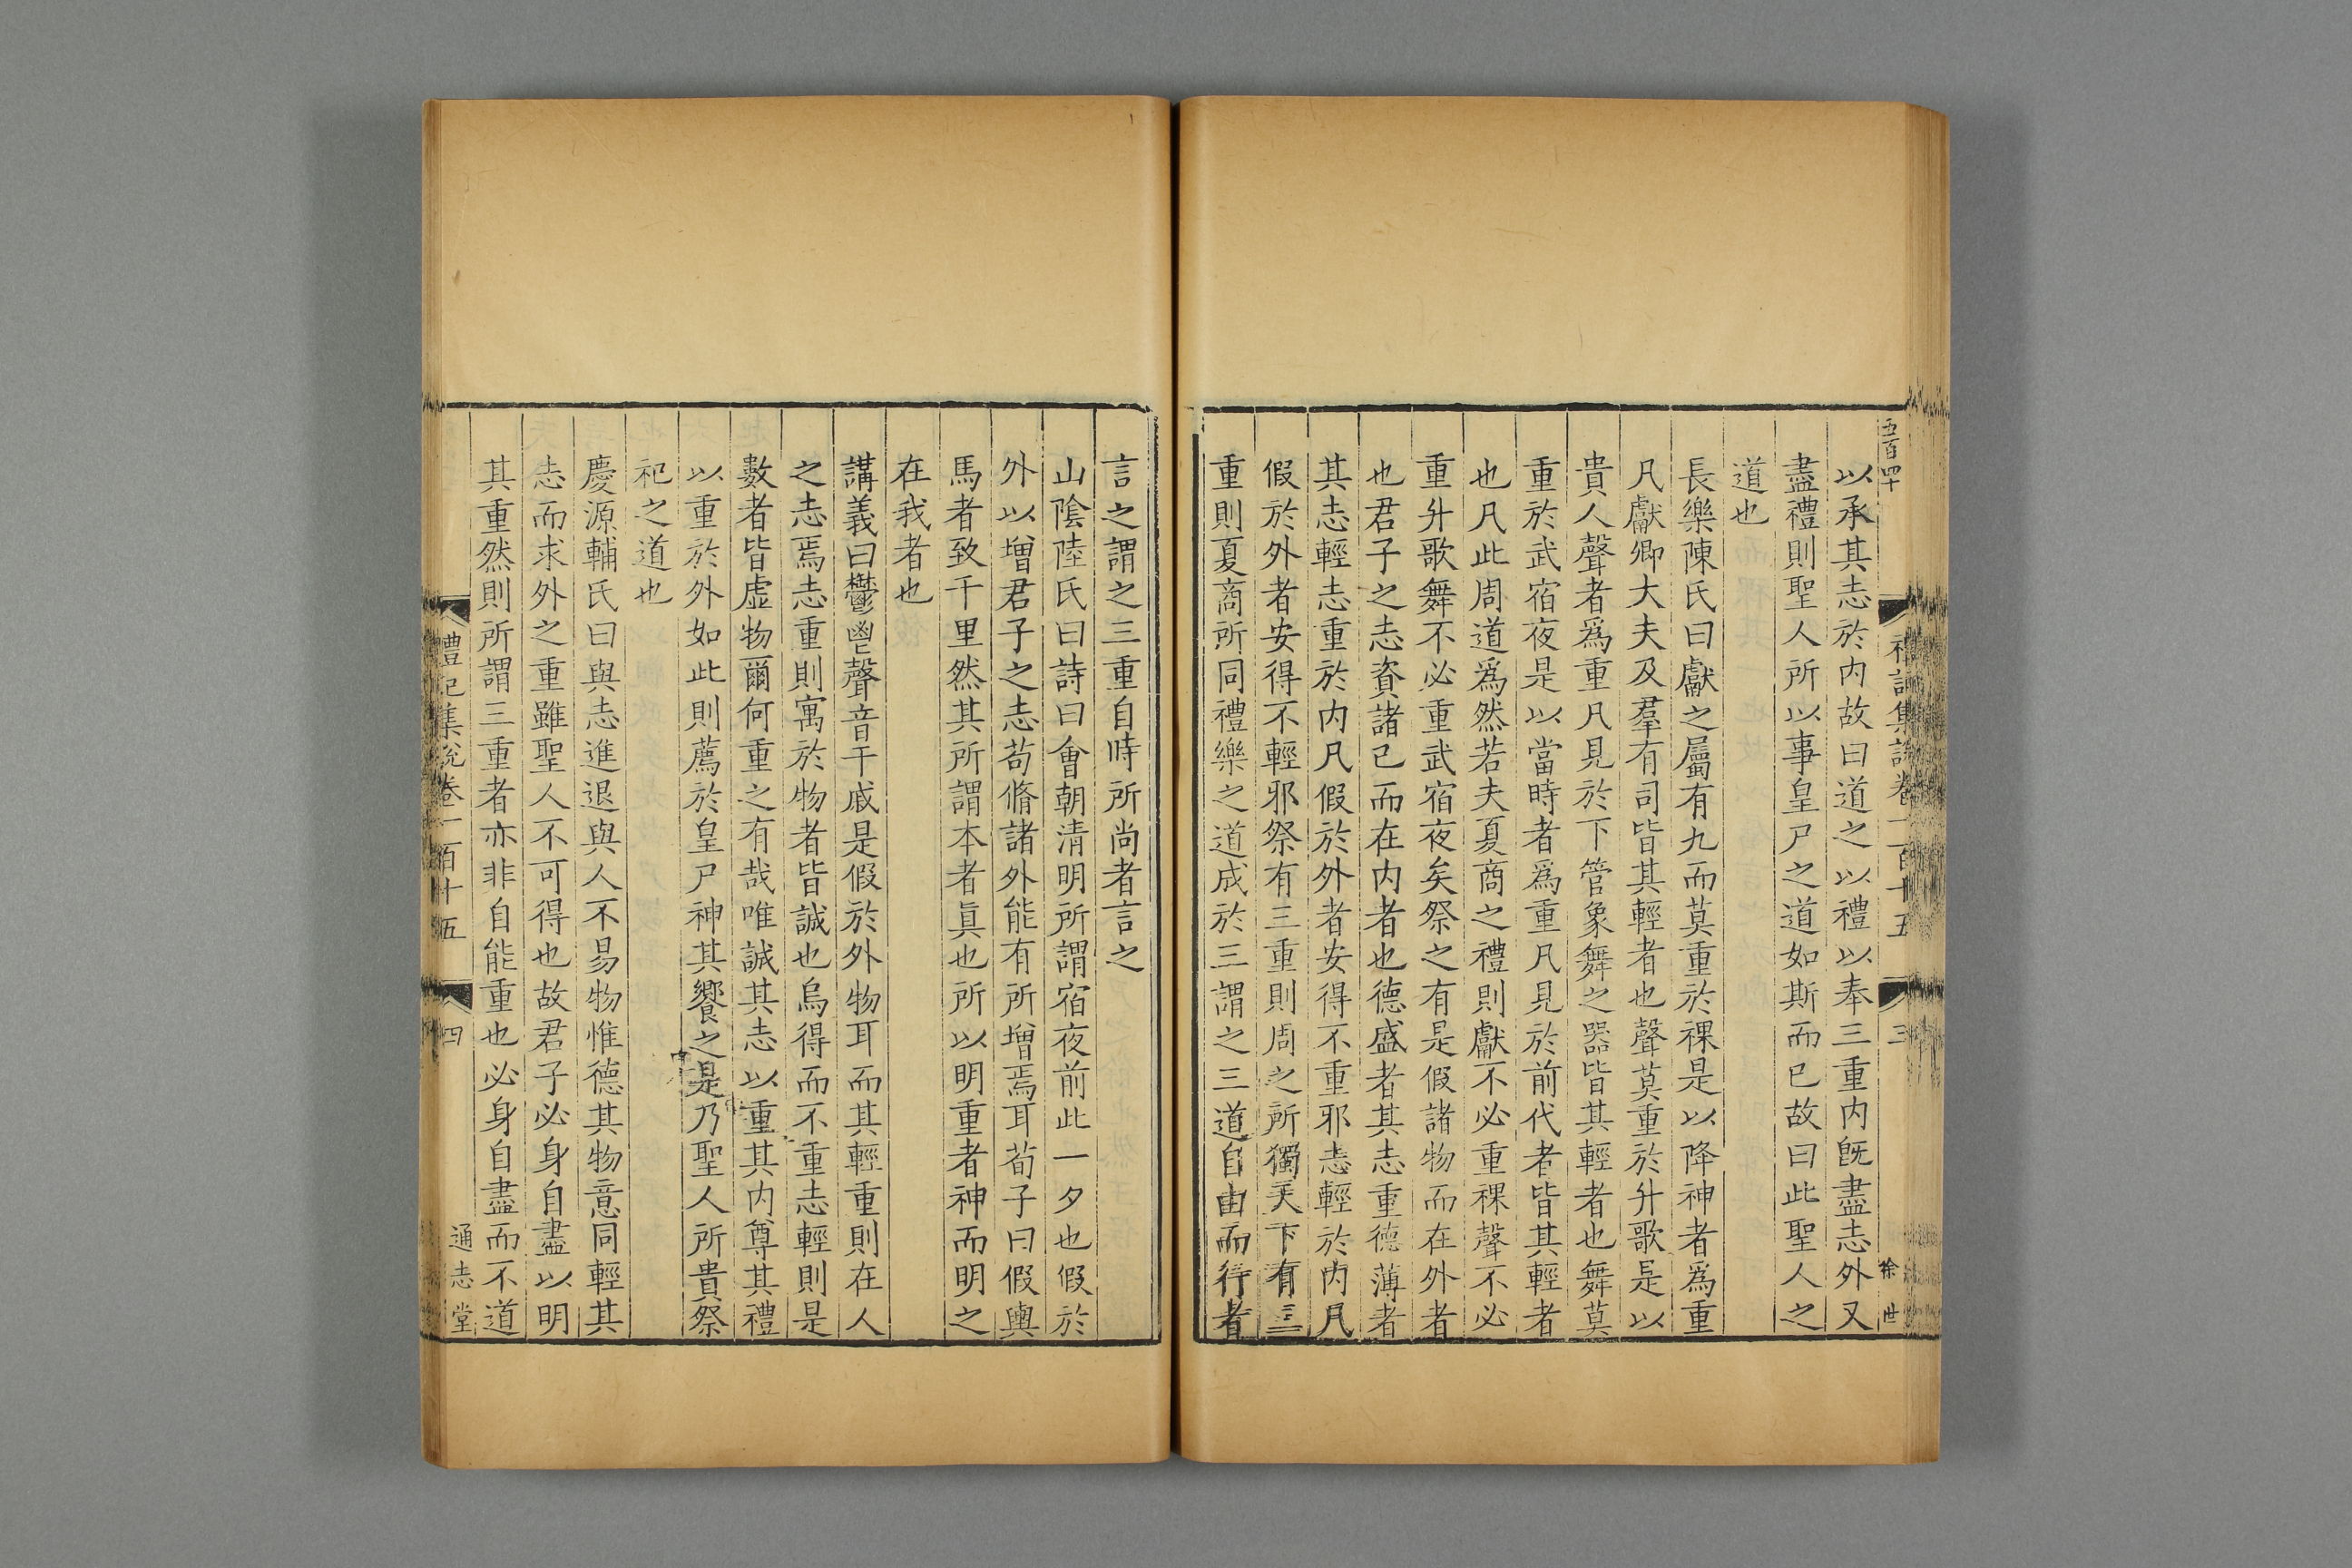 五百四十
禮記集說卷一百十五
三
徐世
以承其志於内故曰道之以禮以奉三重内旣盡志外又
盡禮則聖人所以事皇尸之道如斯而已故曰此聖人之
道也
長樂陳氏曰獻之屬有九而莫重於祼是以降神者爲重
凡獻卿大夫及羣有司皆其輕者也聲莫重於升歌是以
貴人聲者爲重凡見於下管象舞之器皆其輕者也舞莫
重於武宿夜是以當時者爲重凡見於前代者皆其輕者
也凡此周道爲然若夫夏商之禮則獻不必重祼聲不必
重升歌舞不必重武宿夜矣祭之有是假諸物而在外者
也君子之志資諸已而在内者也德盛者其志重德薄者
其志輕志重於内凡假於外者安得不重邪志輕於内凡
假於外者安得不輕邪祭有三重則周之所獨天下有三
重則夏商所同禮樂之道成於三謂之三道自由而行者
言之謂之三重自時所尚者言之
山陰陸氏曰詩曰會朝清明所謂宿夜前此一夕也假於
外以增君子之志苟脩諸外能有所增焉耳荀子曰假輿
馬者致千里然其所謂本者眞也所以明重者神而明之
在我者也
講義曰鬱鬯聲音干戚是假於外物耳而其輕重則在人
之志焉志重則寓於物者皆誠也烏得而不重志輕則是
數者皆虛物爾何重之有哉唯誠其志以重其内尊其禮
以重於外如此則薦於皇尸神其饗之是乃聖人所貴祭
祀之道也
慶源輔氏曰與志進退與人不易物惟德其物意同輕其
志而求外之重雖聖人不可得也故君子必身自盡以明
其重然則所謂三重者亦非自能重也必身自盡而不道
禮記集說卷一百十五
四
通志堂